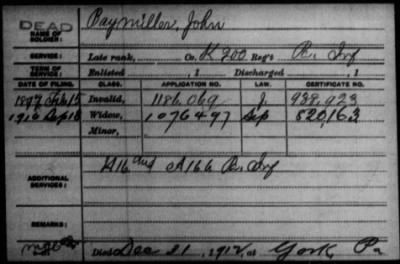 DEAD
NAME OF SOLDIER: Paymiller, John
SERVICE: Late rank, Co. K 200 Reg't Pa. Inf
TERM OF SERVICE: Enlisted , 1 Discharged , 1
DATE OF FILING. CLASS. APPLICATION NO. LAW. CERTIFICATE NO.
1897 Feb 15 Invalid, 1186.069 J. 938.923
Sep 18 Widow, 1076497 Sep 820,163
Minor,
ADDITIONAL SERVICES: H 16 and A 166 Pa Inf
REMARKS:
Died Dec 21, 1912, at York Pa